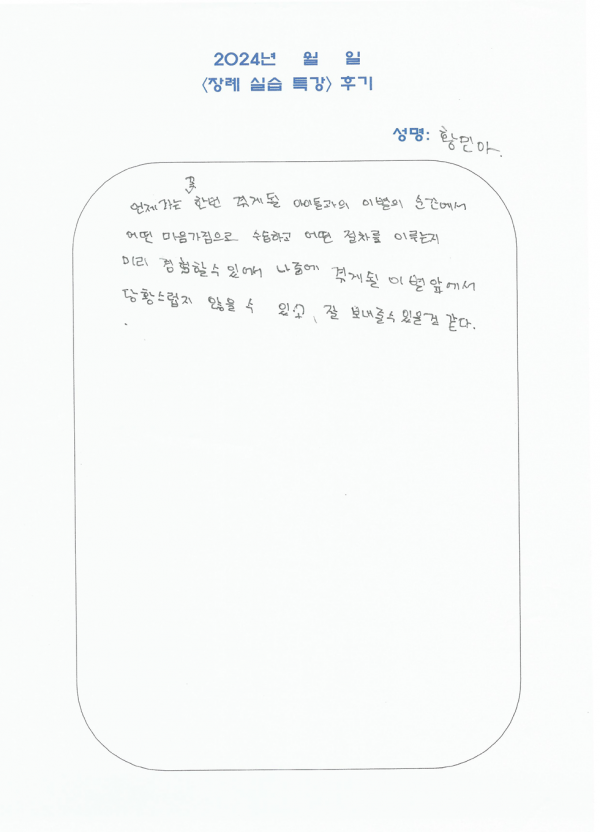 2024년 월 일
<장례 실습 특강> 후기
성명: 황민아.
꼭
언제가는 한번 겪게될 아이들과의 이별의 순간에서
어떤 마음가짐으로 수습하고 어떤 절차를 이루는지
미리 경험할수있어서 나중에 겪게될 이별앞에서
당황스럽지 않을 수 있고, 잘 보내줄수있을것 같다.